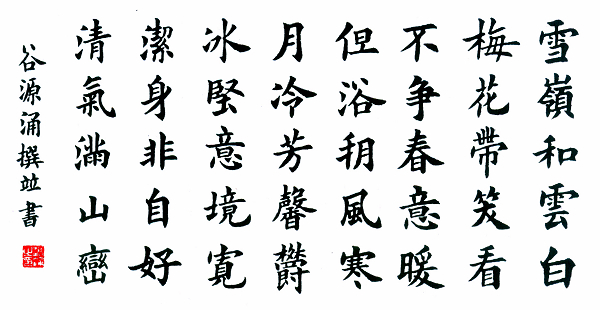 雪嶺和雲白
梅花帶笑看
不争春意暖
但浴朔風寒
月冷芳馨欝
冰堅意境寬
潔身非自好
清氣滿山巒
谷源涌撰並書